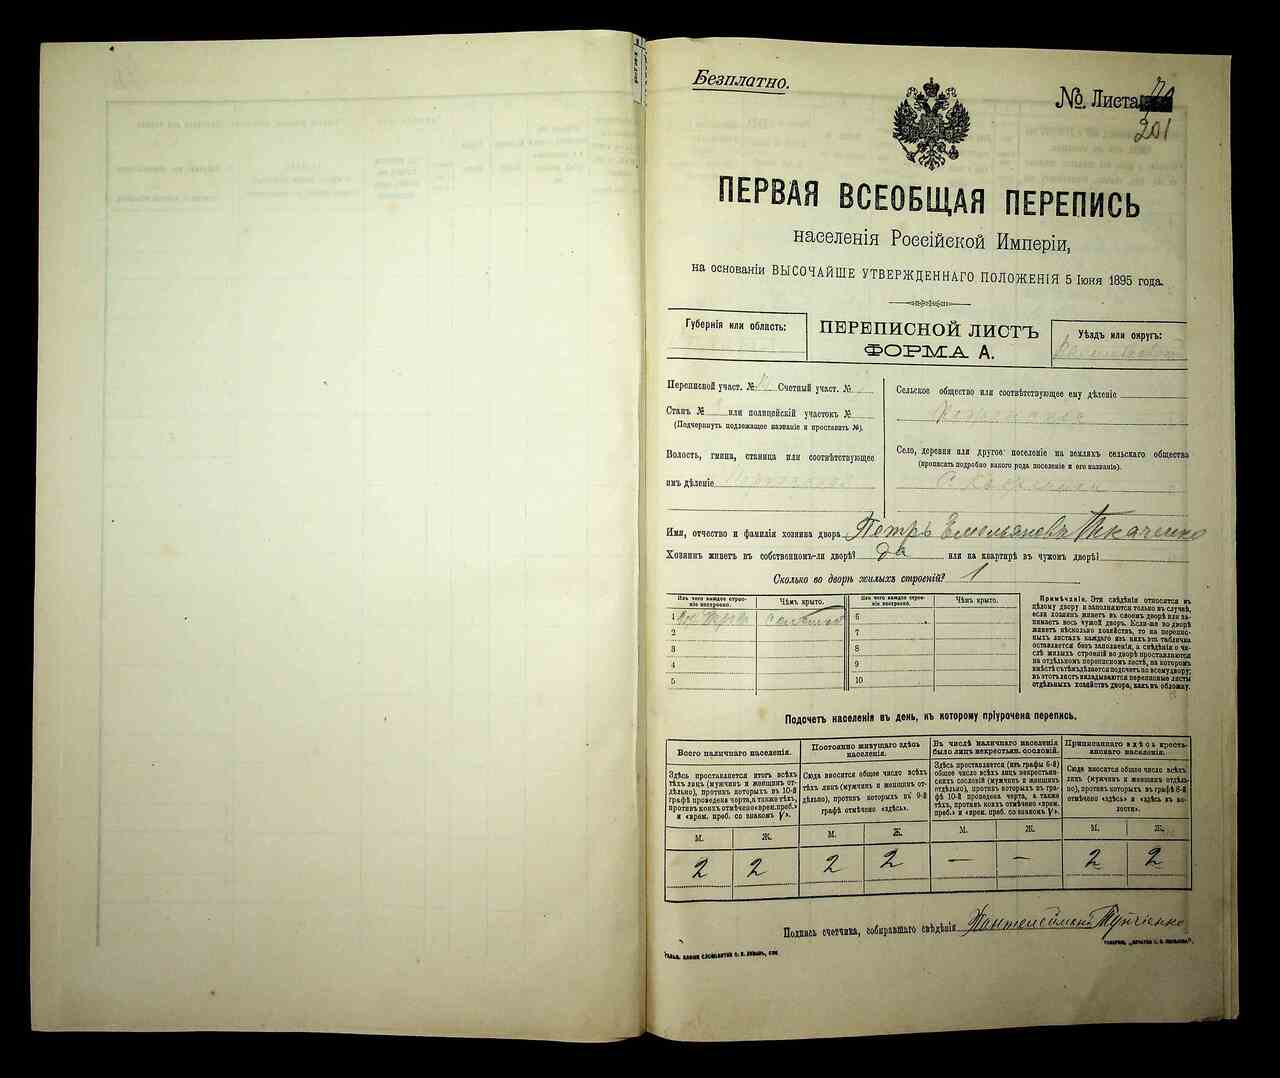 Безплатно.
№. Листа 70
201
ПЕРВАЯ ВСЕОБЩАЯ ПЕРЕПИСЬ
населенія Россійской Имперіи,
на основаніи ВЫСОЧАЙШЕ УТВЕРЖДЕННАГО ПОЛОЖЕНІЯ 5 Іюня 1895 года.
Губернія или область:
ПЕРЕПИСНОЙ ЛИСТЪ
ФОРМА А.
Уѣздъ или округъ:
Переписной участ. № Счетный участ. №
Станъ № или полицейскій участокъ №
(Подчеркнуть подлежащее названіе и проставить №).
Волость, гмина, станица или соотвѣтствующее
имъ дѣленіе
Сельское общество или соотвѣтствующее ему дѣленіе
Село, деревня или другое поселеніе на земляхъ сельскаго общества
(прописать подробно какого рода поселеніе и его названіе).
Имя, отчество и фамилія хозяина двора Петръ Емельяновъ Ткаченко
Хозяинъ живетъ въ собственномъ-ли дворѣ? да или на квартирѣ въ чужомъ дворѣ?
Сколько во дворѣ жилыхъ строеній? 1
Изъ чего каждое строеніе построено. Чѣмъ крыто. Изъ чего каждое строеніе построено. Чѣмъ крыто.
1 6
2 7
3 8
4 9
5 10
Примѣчаніе. Эти свѣдѣнія относятся къ
цѣлому двору и заполняются только въ случаѣ,
если хозяинъ живетъ въ своемъ дворѣ или занимаетъ
весь чужой дворъ. Если-же во дворѣ
живетъ нѣсколько хозяйствъ, то на переписныхъ
листахъ каждаго изъ нихъ эта табличка
оставляется безъ заполненія, а свѣдѣнія о числѣ
жилыхъ строеній во дворѣ проставляются
на отдѣльномъ переписномъ листѣ, на которомъ
вмѣстѣ съ тѣмъ дѣлается подсчетъ по всему двору;
въ этотъ листъ вкладываются переписные листы
отдѣльныхъ хозяйствъ двора, какъ въ обложку.
Подсчетъ населенія въ день, къ которому пріурочена перепись.
Всего наличнаго населенія.
Здѣсь проставляется итогъ всѣхъ
тѣхъ лицъ (мужчинъ и женщинъ отдѣльно),
противъ которыхъ въ 10-й
графѣ проведена черта, а также тѣхъ,
противъ коихъ отмѣчено «врем. преб.»
и «врем. преб. со знакомъ V».
Постоянно живущаго здѣсь
населенія.
Сюда вносится общее число всѣхъ
тѣхъ лицъ (мужчинъ и женщинъ отдѣльно),
противъ которыхъ въ 9-й
графѣ отмѣчено «здѣсь».
Въ числѣ наличнаго населенія
было лицъ некрестьян. сословій.
Здѣсь проставляется (изъ графы 6-й)
общее число всѣхъ лицъ некрестьянскихъ
сословій (мужчинъ и женщинъ
отдѣльно), противъ которыхъ въ графѣ
10 проведена черта, а также
тѣхъ, противъ коихъ отмѣчено «врем.
преб.» и «врем. преб. со знакомъ V».
Приписаннаго здѣсь крестьянскаго
населенія.
Сюда вносится общее число всѣхъ
лицъ (мужчинъ и женщинъ отдѣльно),
противъ которыхъ въ графѣ 8-й
отмѣчено «здѣсь» и «здѣсь въ волости».
М. Ж. М. Ж. М. Ж. М. Ж.
2 2 2 2 — — 2 2
Подпись счетчика, собиравшаго свѣдѣнія Пантелеймонъ